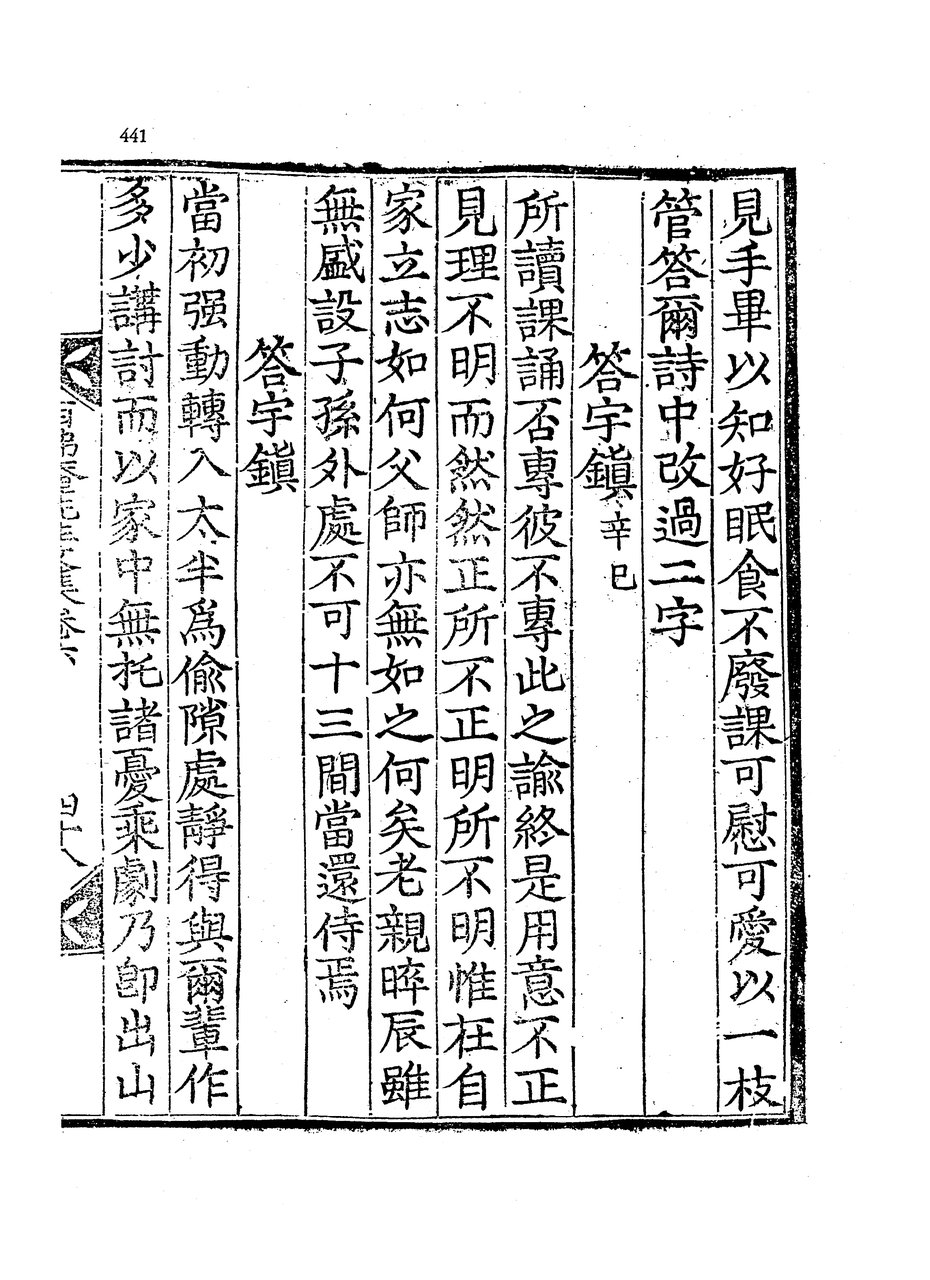 441
見手畢以知好眠食不廢課可慰可愛以一枝
管答爾詩中改過二字
答宇鎭辛巳
所讀課誦否專彼不專此之諭終是用意不正
見理不明而然然正所不正明所不明惟在自
家立志如何父師亦無如之何矣老親晬辰雖
無盛設子孫外處不可十三間當還侍焉
答宇鎭
當初强動轉入太半爲偸隙處靜得與爾輩作
多少講討而以家中無托諸憂乘劇乃卽出山